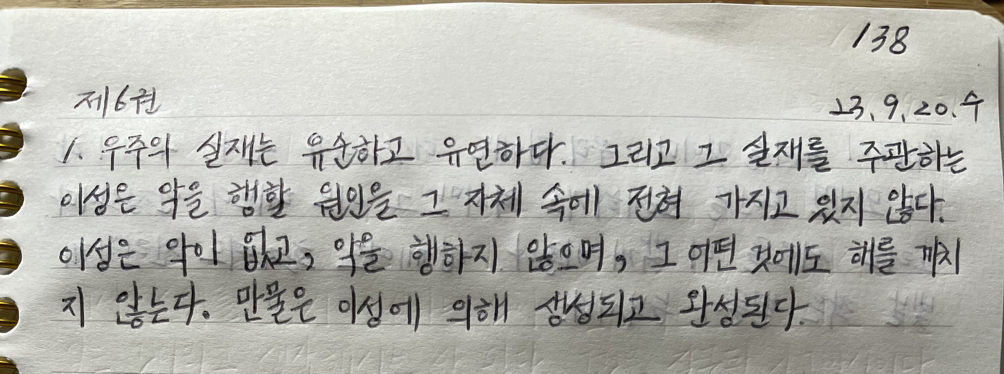 138
제6권
23.9.20.수
1. 우주의 실재는 유순하고 유연하다. 그리고 그 실재를 주관하는
이성은 악을 행할 원인을 그 자체 속에 전혀 가지고 있지 않다.
이성은 악이 없고, 악을 행하지 않으며, 그 어떤 것에도 해를 끼치
지 않는다. 만물은 이성에 의해 생성되고 완성된다.